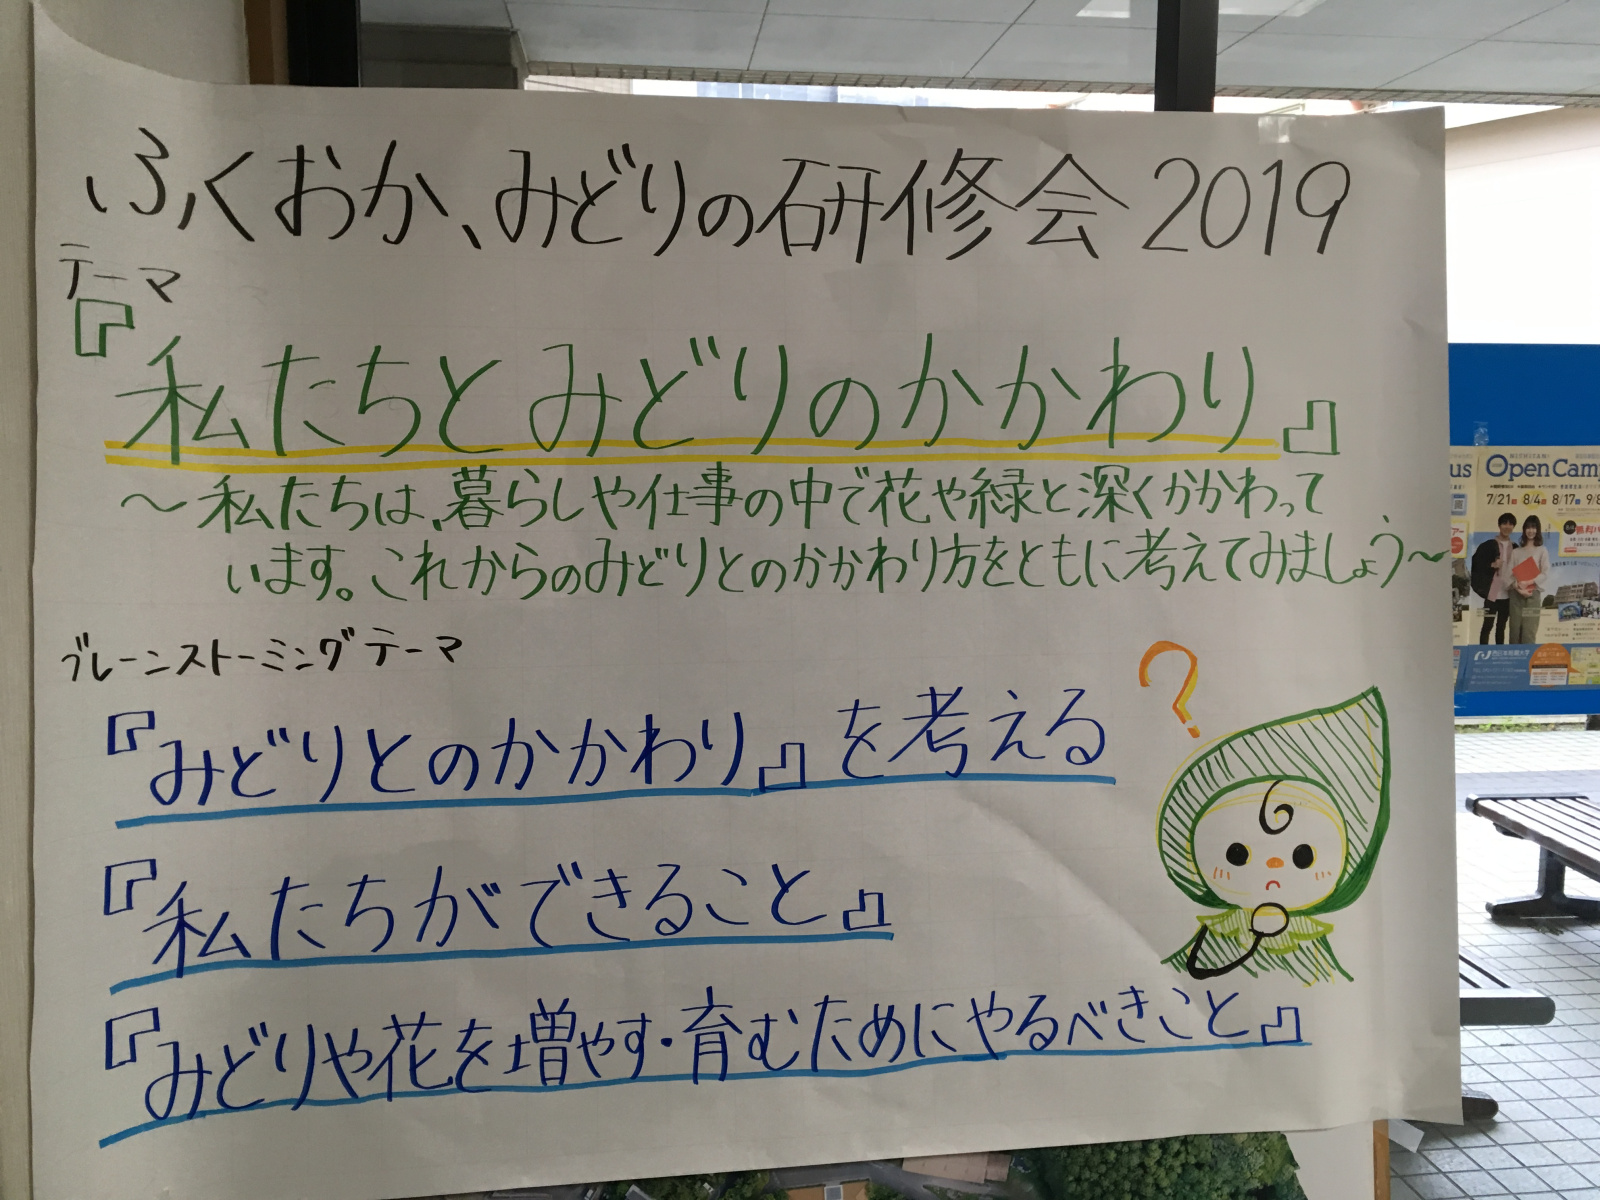 ふくおか、みどりの研修会2019
テーマ
『私たちとみどりのかかわり』
～私たちは、暮らしや仕事の中で花や緑と深くかかわって
います。これからのみどりとのかかわり方をともに考えてみましょう～
ブレーンストーミングテーマ
?
『みどりとのかかわり』を考える
『私たちができること』
『みどりや花を増やす・育むためにやるべきこと』
us
Open Cam
7/21 8/4 8/17 9/8
西日本短期大学